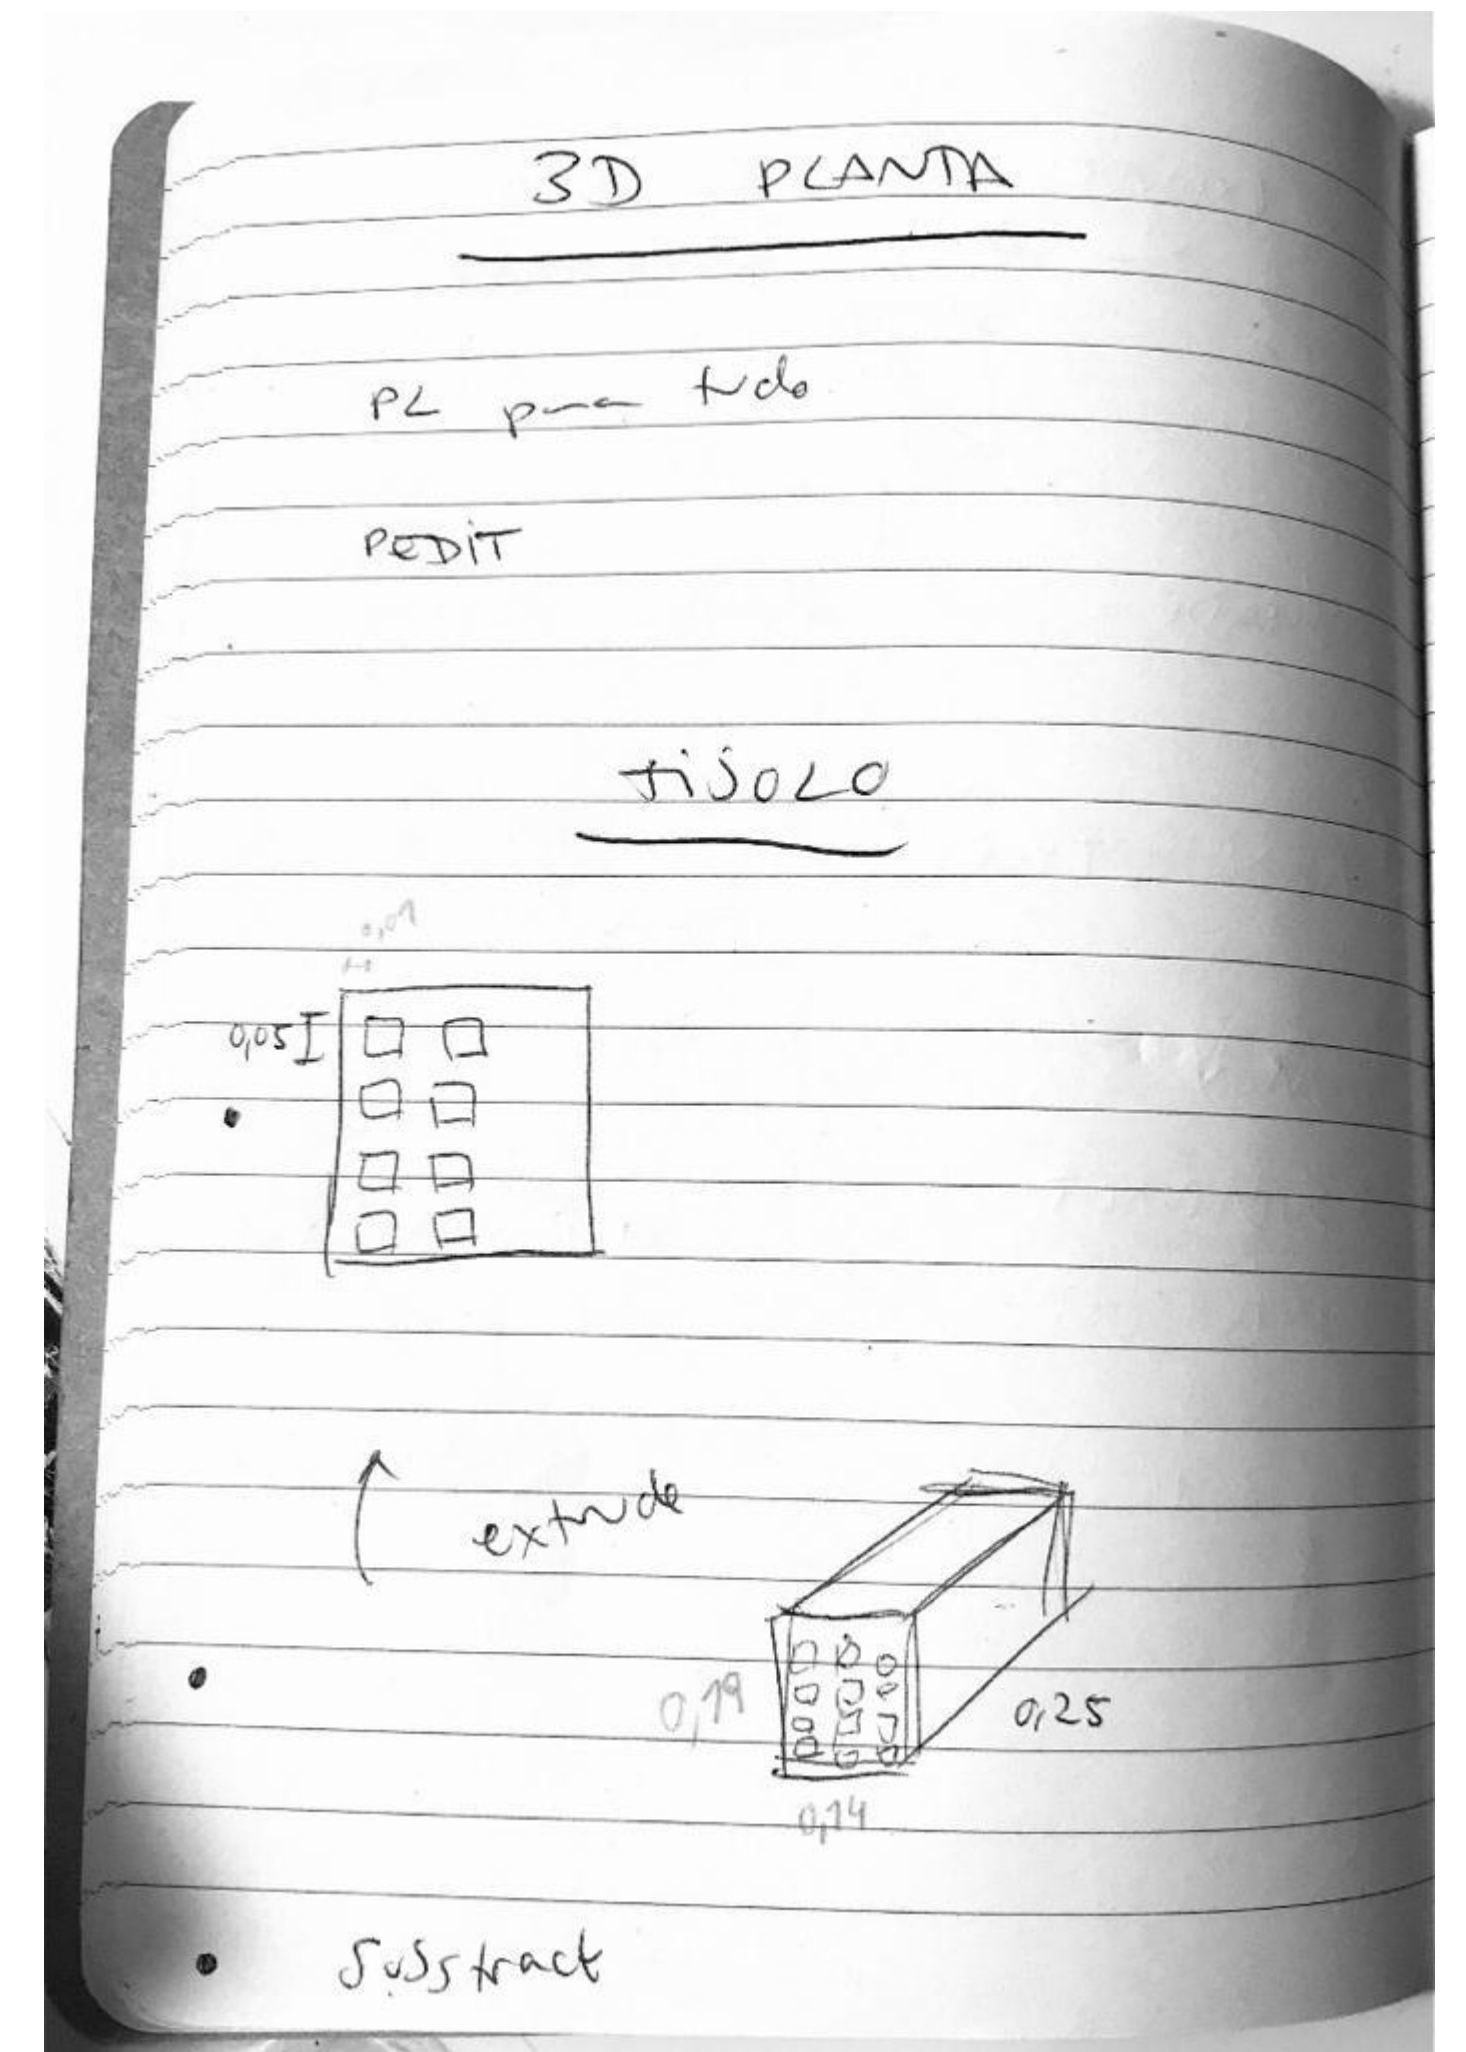 3D PLANTA
PL para tudo
PEDIT
TIJOLO
0,01
0,05
extrude
0,19
0,25
0,14
Substract